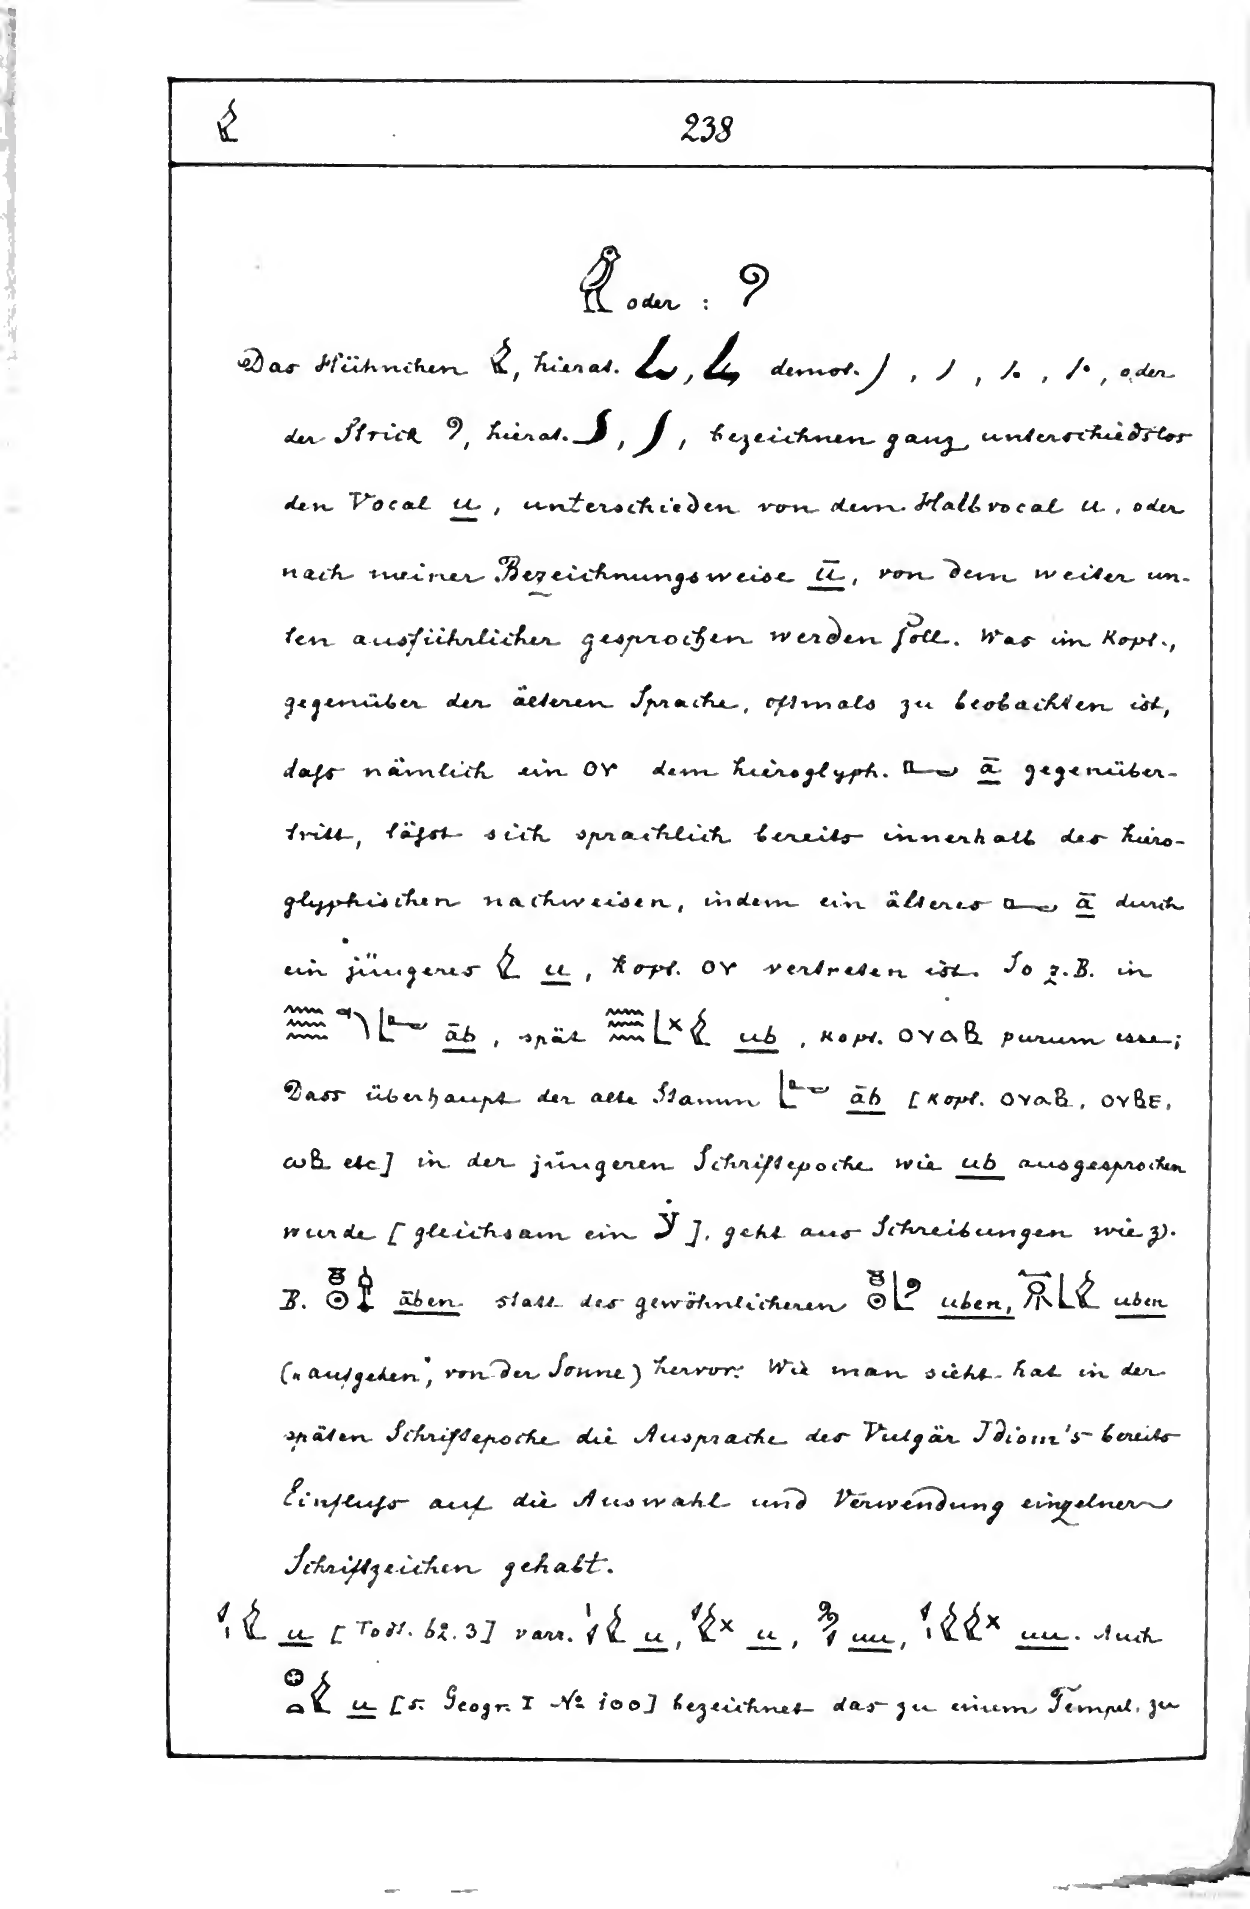 𓅱 238
𓅱 oder : 𓏲
Das Hühnchen 𓅱, hierat. , demot. , oder
der Strick 𓏲, hierat. , bezeichnen ganz unterschiedslos
den Vocal u, unterschieden von dem Halbvocal u, oder
nach meiner Bezeichnungsweise ū, von dem weiter un-
ten ausführlicher gesprochen werden soll. Was im Kopt.,
gegenüber der älteren Sprache, oftmals zu beobachten ist,
dafs nämlich ein ⲟⲩ dem hieroglyph. 𓂝 ā gegenüber-
tritt, läfst sich sprachlich bereits innerhalb des hiero-
glyphischen nachweisen, indem ein älteres 𓂝 ā durch
ein jüngeres 𓅱 u, kopt. ⲟⲩ vertreten ist. So z.B. in
𓈗 𓃀𓂝 āb, spät 𓈗𓃀𓏴𓅱 ub, kopt. ⲟⲩⲁⲃ purum esse;
Dass überhaupt der alte Stamm 𓃀𓂝 āb [kopt. ⲟⲩⲁⲃ, ⲟⲩⲃⲉ,
ⲱⲃ etc] in der jüngeren Schriftepoche wie ub ausgesprochen
wurde [gleichsam ein ], geht aus Schreibungen wie z.
B. āben statt des gewöhnlicheren uben, uben
(„aufgehen", von der Sonne) hervor. Wie man sieht hat in der
späten Schriftepoche die Aussprache des Vulgär Idiom's bereits
Einflufs auf die Auswahl und Verwendung einzelner
Schriftzeichen gehabt.
𓅱 u [Todt. 62.3] varr. 𓅱 u, 𓅱𓏴 u, uu, 𓅱𓅱𓏴 uu. Auch
𓊖𓏏𓅱 u [s. Geogr. I No 100] bezeichnet das zu einem Tempel zu